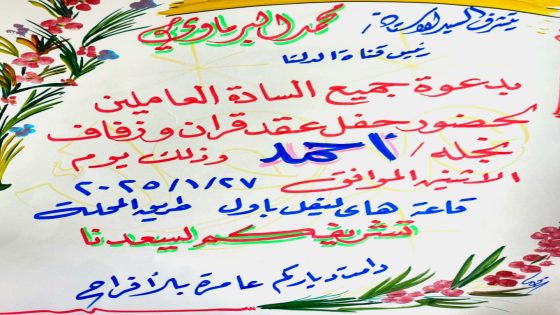 يتشرف السيد الأستاذ / محمد البرماوي
رئيس قناة الدلتا
بدعوة جميع السادة العاملين
لحضور حفل عقد قران و زفاف
نجله / أحمد وذلك يوم
الاثنين الموافق ٢٠٢٥/١/٢٧
قاعة هاى ليفل باول طريق المحلة
تشريفكم ليسعدنا
دامت دياركم عامرة بالأفراح